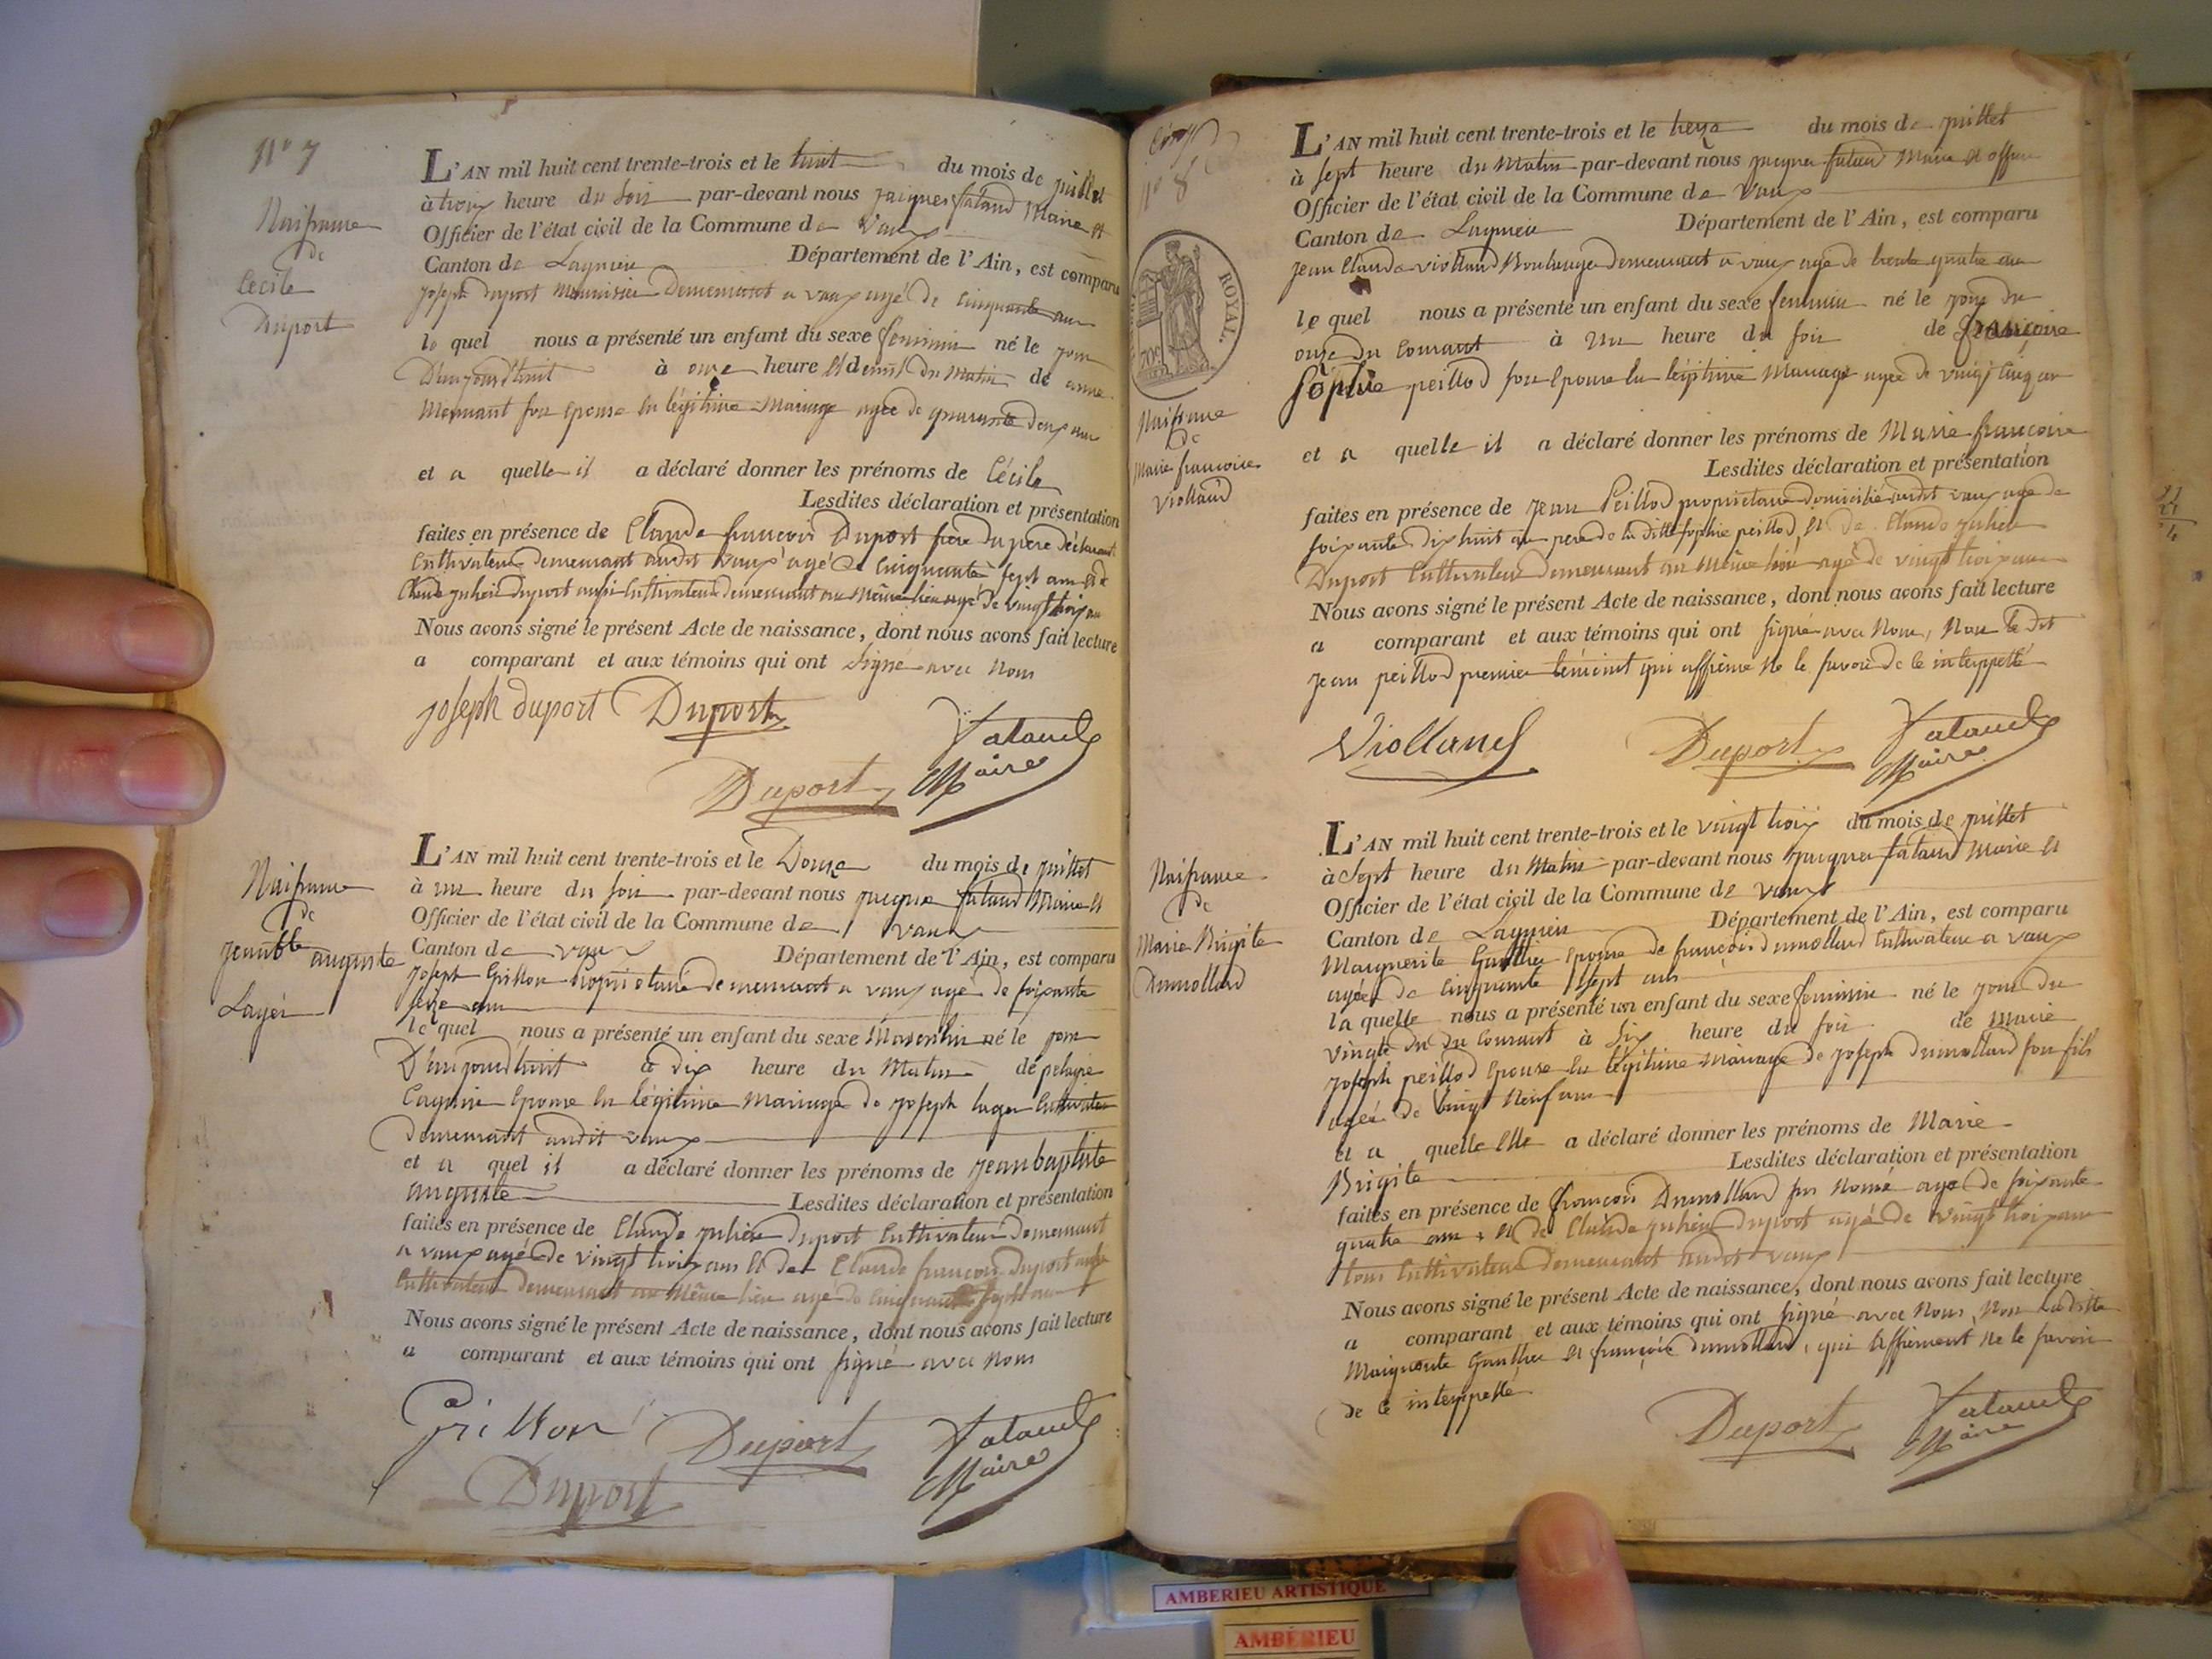 N° 7
Naissance
de
Cecile
Duport
L'AN mil huit cent trente-trois et le huit du mois de juillet
à trois heure du soir par-devant nous jacques fataud Maire et
Officier de l'état civil de la Commune de Vaux
Canton de Lagnieu Département de l'Ain, est comparu
joseph duport Menuisier demeurant a vaux agé de cinquante ans
le quel nous a présenté un enfant du sexe feminin né le jour
D'aujourd'huit à onze heure et demi du Matin de anne
son epouse en légitime Mariage agée de quarante deux ans
et a quelle il a déclaré donner les prénoms de Cécile
Lesdites déclaration et présentation
faites en présence de Claude francois Duport frere du pere déclarant
Cultivateur demeurant audit Vaux agé de cinquante sept ans et de
Claude julien duport aussi Cultivateur demeurant au même lieu agé de vingt trois ans
Nous avons signé le présent Acte de naissance, dont nous avons fait lecture
a comparant et aux témoins qui ont signé avec nous
joseph duport Duport
Duport
Fataud
Maire
Naissance
de
jean bte auguste
Lager
L'AN mil huit cent trente-trois et le Douze du mois de juillet
à un heure du soir par-devant nous jacques fataud Maire et
Officier de l'état civil de la Commune de vaux
Canton de vaux Département de l'Ain, est comparu
joseph Grillon proprietaire demeurant a vaux agé de soixante
seize ans
le quel nous a présenté un enfant du sexe Masculin né le jour
D'aujourd'huit à dix heure du Matin de pelagie
epouse en légitime Mariage de joseph lager Cultivateur
demeurant audit vaux
et a quel il a déclaré donner les prénoms de jean baptiste
auguste Lesdites déclaration et présentation
faites en présence de Claude julien duport Cultivateur demeurant
a vaux agé de vingt trois ans et de Claude francois duport aussi
Cultivateur demeurant au même lieu agé de cinquante sept ans
Nous avons signé le présent Acte de naissance, dont nous avons fait lecture
a comparant et aux témoins qui ont signé avec nous
Grillon Duport
Duport
Fataud
Maire
N° 8
ROYAL.
70c
Naissance
de
Marie francoise
Viollaud
L'AN mil huit cent trente-trois et le treize du mois de juillet
à sept heure du Matin par-devant nous jacques fataud Maire et
Officier de l'état civil de la Commune de Vaux
Canton de Lagnieu Département de l'Ain, est comparu
jean Claude viollaud Boulanger demeurant a vaux agé de trente quatre ans
le quel nous a présenté un enfant du sexe feminin né le jour du
onze du Courant à un heure du soir de françoise
Sophie peillod son epouse en légitime Mariage agée de vingt cinq ans
et a quelle il a déclaré donner les prénoms de Marie françoise
Lesdites déclaration et présentation
faites en présence de jean Peillod proprietaire domicilié audit vaux agé de
soixante dix huit ans pere de la ditte sophie peillod, et de Claude julien
Duport Cultivateur demeurant au même lieu agé de vingt trois ans
Nous avons signé le présent Acte de naissance, dont nous avons fait lecture
a comparant et aux témoins qui ont signé avec Nous, Non le dit
jean peillod premier témoint qui affirme ne le savoir de ce interppellé
Viollaud Duport
Fataud
Maire
Naissance
de
Marie Brigite
Dumollard
L'AN mil huit cent trente-trois et le vingt trois du mois de juillet
à Sept heure du Matin par-devant nous jacques fataud Maire et
Officier de l'état civil de la Commune de vaux
Canton de Lagnieu Département de l'Ain, est comparu
Marguerite Gauthier epouse de françois dumollard Cultivateur a vaux
agée de cinquante sept ans
la quelle nous a présenté un enfant du sexe feminin né le jour du
vingt du Courant à six heure du soir de marie
joseph peillod epouse en légitime Mariage de joseph dumollard son fils
agée de vingt Neuf ans
et a quelle elle a déclaré donner les prénoms de Marie
Brigite Lesdites déclaration et présentation
faites en présence de françois Dumollard agé de soixante
quatre ans, et de Claude julien duport agé de vingt trois ans
tous Cultivateur demeurant audit vaux
Nous avons signé le présent Acte de naissance, dont nous avons fait lecture
a comparant et aux témoins qui ont signé avec Nous, Non Laditte
Marguerite Gauthier et françois dumollard, qui affirment ne le savoir
de ce interppellé
Duport
Fataud
Maire
AMBERIEU ARTISTIQUE
AMBÉRIEU